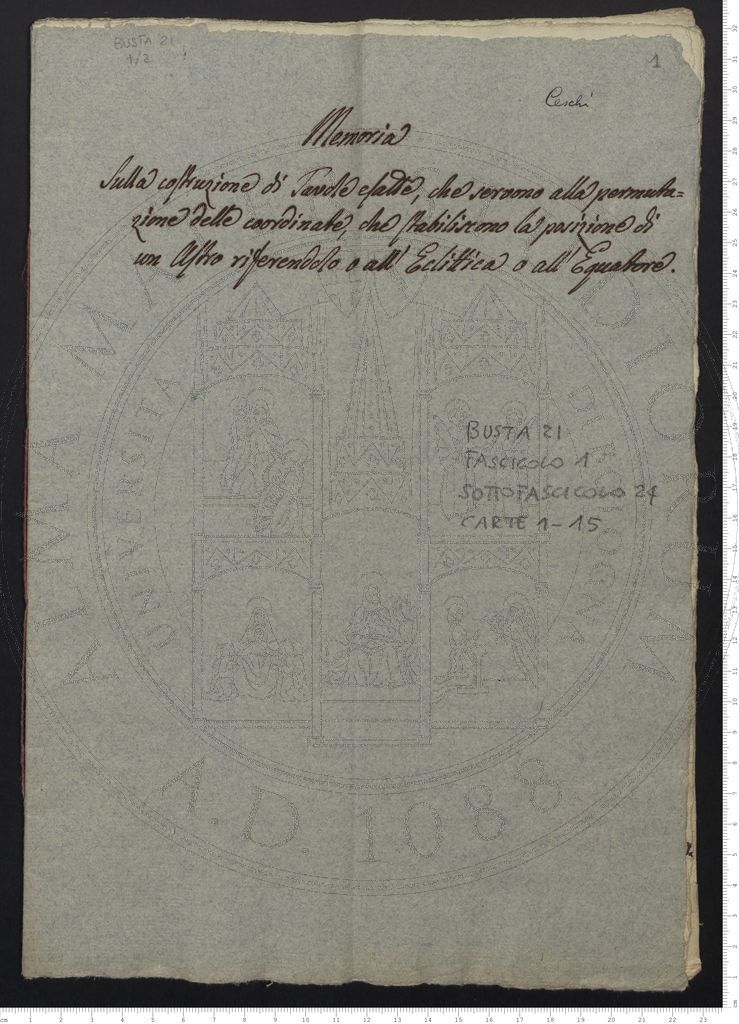 BUSTA 21
1/2
1
Ceschi
Memoria
Sulla costruzione di Tavole esatte, che servono alla permuta=
zione delle coordinate, che stabiliscono la posizione di
un Astro riferendolo o all' Eclittica o all' Equatore.
BUSTA 21
FASCICOLO 1
SOTTOFASCICOLO 24
CARTE 1-15
ALMA MATER STUDIORUM
UNIVERSITÀ DI BOLOGNA
A.D. 1088